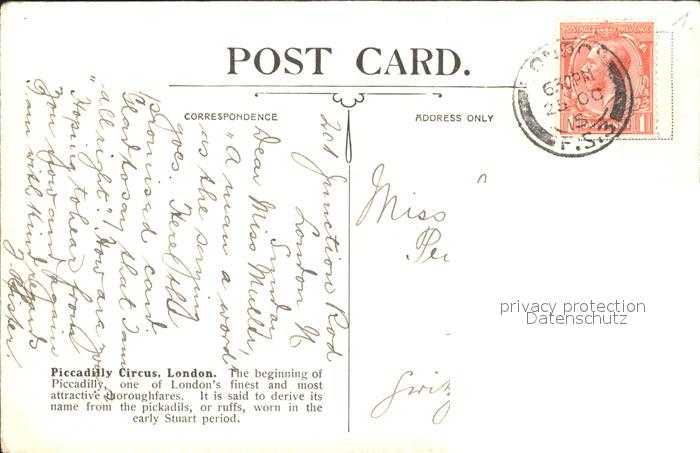 POST CARD.
CORRESPONDENCE
ADDRESS ONLY
POSTAGE REVENUE
1 1
LONDON
6.30PM
25 OC
15
F.S.
1.
201 Junction Rod
London N
Sunday
Dear Miss Muller,
"A man a word"
is the saying
goes. Here
promised card
Glad to say that I am
"all right". How are you?
Hoping to hear from
you now and again
I am with kind regards
Miss
privacy protection
Datenschutz
Piccadilly Circus, London. The beginning of
Piccadilly, one of London's finest and most
attractive thoroughfares. It is said to derive its
name from the pickadils, or ruffs, worn in the
early Stuart period.